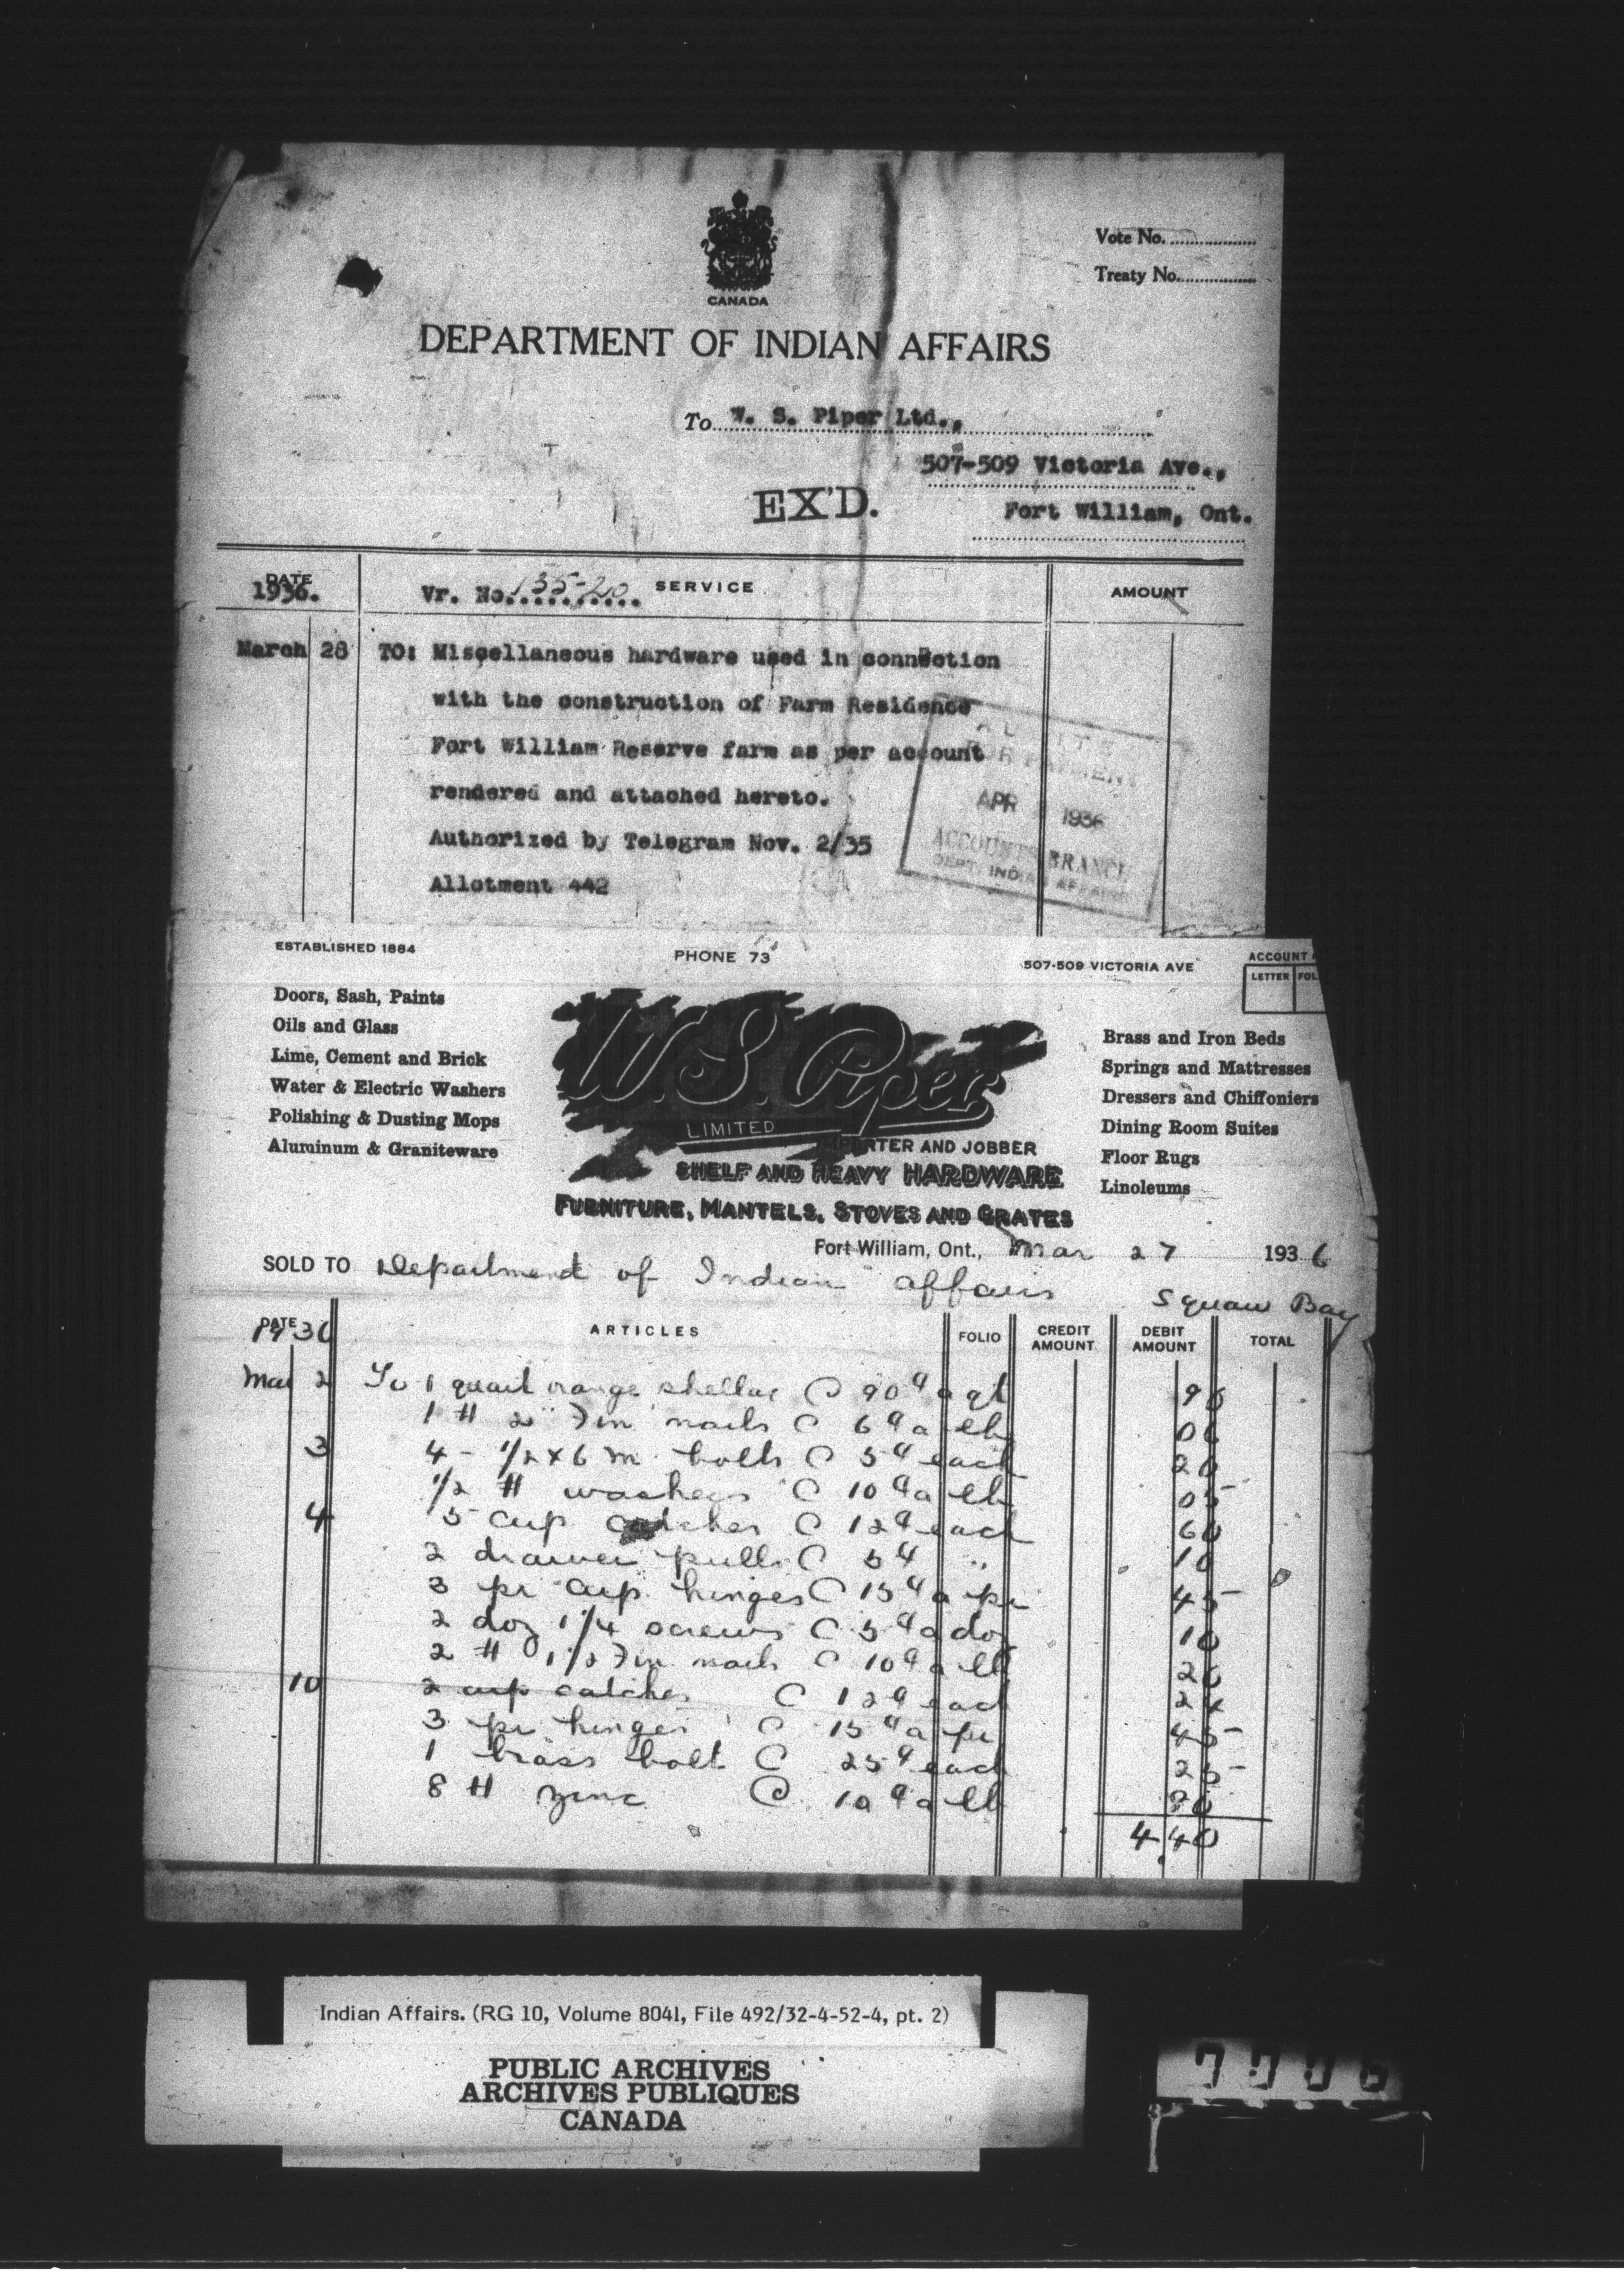 Vote No.
Treaty No.
CANADA
DEPARTMENT OF INDIAN AFFAIRS
To W. S. Piper Ltd.,
507-509 Victoria Ave.,
EX'D.
Fort William, Ont.
DATE
1936.
Vr. No. 135-20 SERVICE
AMOUNT
March 28 TO: Miscellaneous hardware used in connection
with the construction of Farm Residence
Fort William Reserve farm as per account
rendered and attached hereto.
Authorized by Telegram Nov. 2/35
Allotment 442
FOR PAYMENT
APR 1936
ACCOUNTS BRANCH
DEPT. INDIAN AFFAIRS
ESTABLISHED 1884
PHONE 73
507-509 VICTORIA AVE
ACCOUNT
LETTER FOL
Doors, Sash, Paints
Oils and Glass
Lime, Cement and Brick
Water & Electric Washers
Polishing & Dusting Mops
Aluminum & Graniteware
W. S. Piper
LIMITED
IMPORTER AND JOBBER
SHELF AND HEAVY HARDWARE
FURNITURE, MANTELS, STOVES AND GRATES
Brass and Iron Beds
Springs and Mattresses
Dressers and Chiffoniers
Dining Room Suites
Floor Rugs
Linoleums
Fort William, Ont., Mar 27 1936
SOLD TO Department of Indian affairs
Squaw Bay
DATE
1936
ARTICLES FOLIO CREDIT AMOUNT DEBIT AMOUNT TOTAL
Mar 2 To 1 quart orange shellac @ 90¢ a qt 90
1 # 2" Fin nails @ 6¢ a lb 06
3 4 - 1/2 x 6 m bolts @ 5¢ each 20
1/2 # washers @ 10¢ a lb 05
4 5 cup catches @ 12¢ each 60
2 drawer pulls @ 5¢ " 10
3 pr cup hinges @ 15¢ a pr 45
2 doz 1 1/4 screws @ 5¢ a doz 10
2 # 1 1/2 Fin nails @ 10¢ a lb 20
10 2 cup catches @ 12¢ each 24
3 pr hinges @ 15¢ a pr 45
1 brass bolt @ 25¢ each 25
8 # zinc @ 10¢ a lb 80
4.40
Indian Affairs. (RG 10, Volume 8041, File 492/32-4-52-4, pt. 2)
PUBLIC ARCHIVES
ARCHIVES PUBLIQUES
CANADA